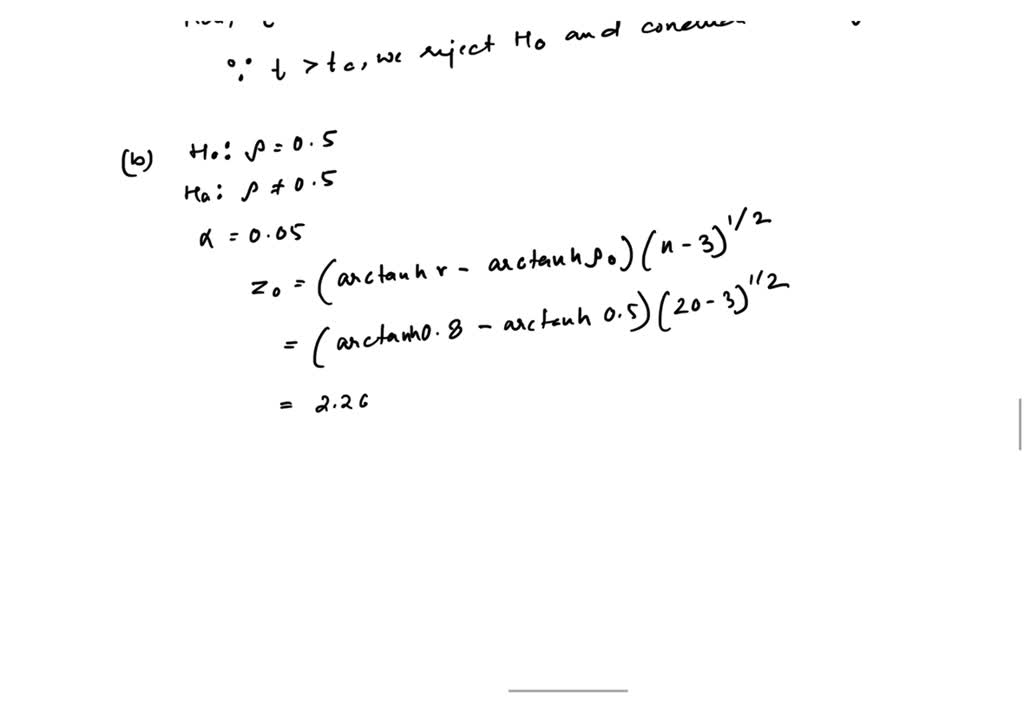 ∵ t > tc, we reject Ho and
(b) Ho: ρ = 0.5
Ha: ρ ≠ 0.5
α = 0.05
zo = (arctanh r - arctanh ρo)(n - 3)^1/2
= (arctanh 0.8 - arctanh 0.5)(20 - 3)^1/2
= 2.26